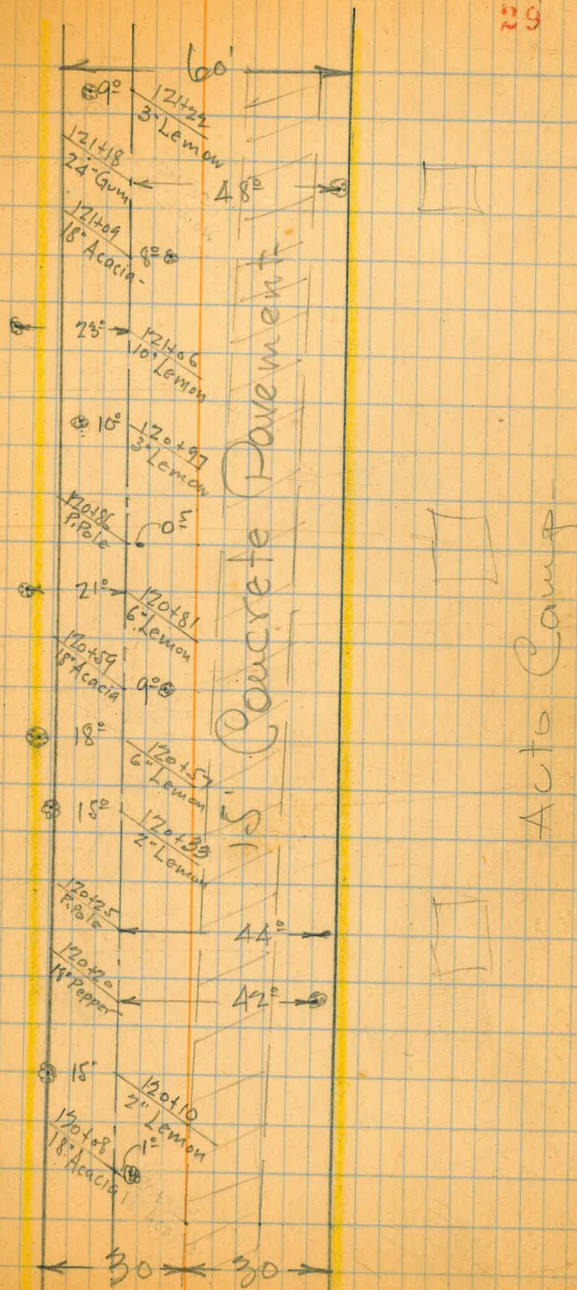 29
60'
9º
121+22
3" Lemon
121+18
24" Gum
48º
121+09
18" Acacia
8º
23º
121+06
10" Lemon
10º
120+97
3" Lemon
120+86
P. Pole
0⁵
21º
120+81
6" Lemon
120+59
18" Acacia
9º
18º
120+57
6" Lemon
15º
120+39
2" Lemon
120+25
P. Pole
44º
120+20
18" Pepper
42º
15'
120+10
2" Lemon
120+08
18" Acacia
1º
30
30
15' Concrete Pavement
Acto Camp